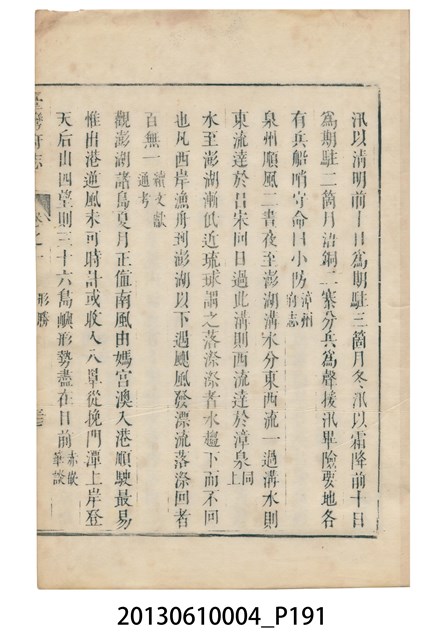 汛以清明前十日爲期駐三箇月冬汛以霜降前十日
爲期駐二箇月浯銅二寨分兵爲聲援汛畢險要地各
有兵船哨守命曰小防漳州府志
泉州順風二晝夜至澎湖溝水分東西流一過溝水則
東流達於呂宋回日過此溝則西流達於漳泉同上
水至澎湖漸低近琉球謂之落漈漈者水趨下而不回
也凡西岸漁舟到澎湖以下遇颶風發漂流落漈回者
百無一續文獻通考
觀澎湖諸島夏月正値南風由媽宮澳入港順駛最易
惟出港逆風未可時計或收入八罩從挽門潭上岸登
天后山四望則三十六島嶼形勢盡在目前赤嵌筆談
臺灣府志 卷之一 形勝
20130610004_P191